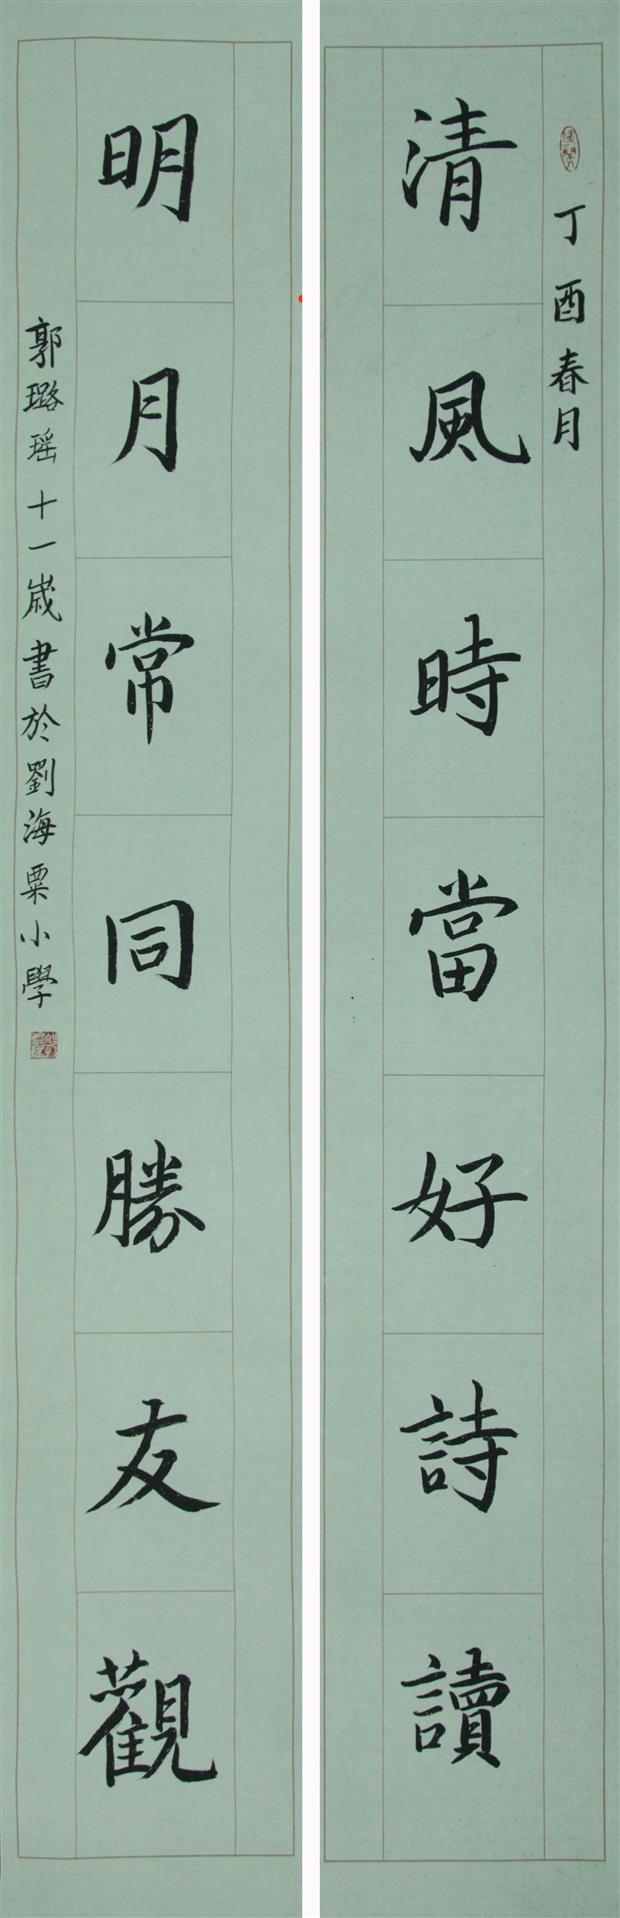 丁酉春月
清風時當好詩讀
明月常同勝友觀
郭璐瑶十一歲書於劉海粟小學